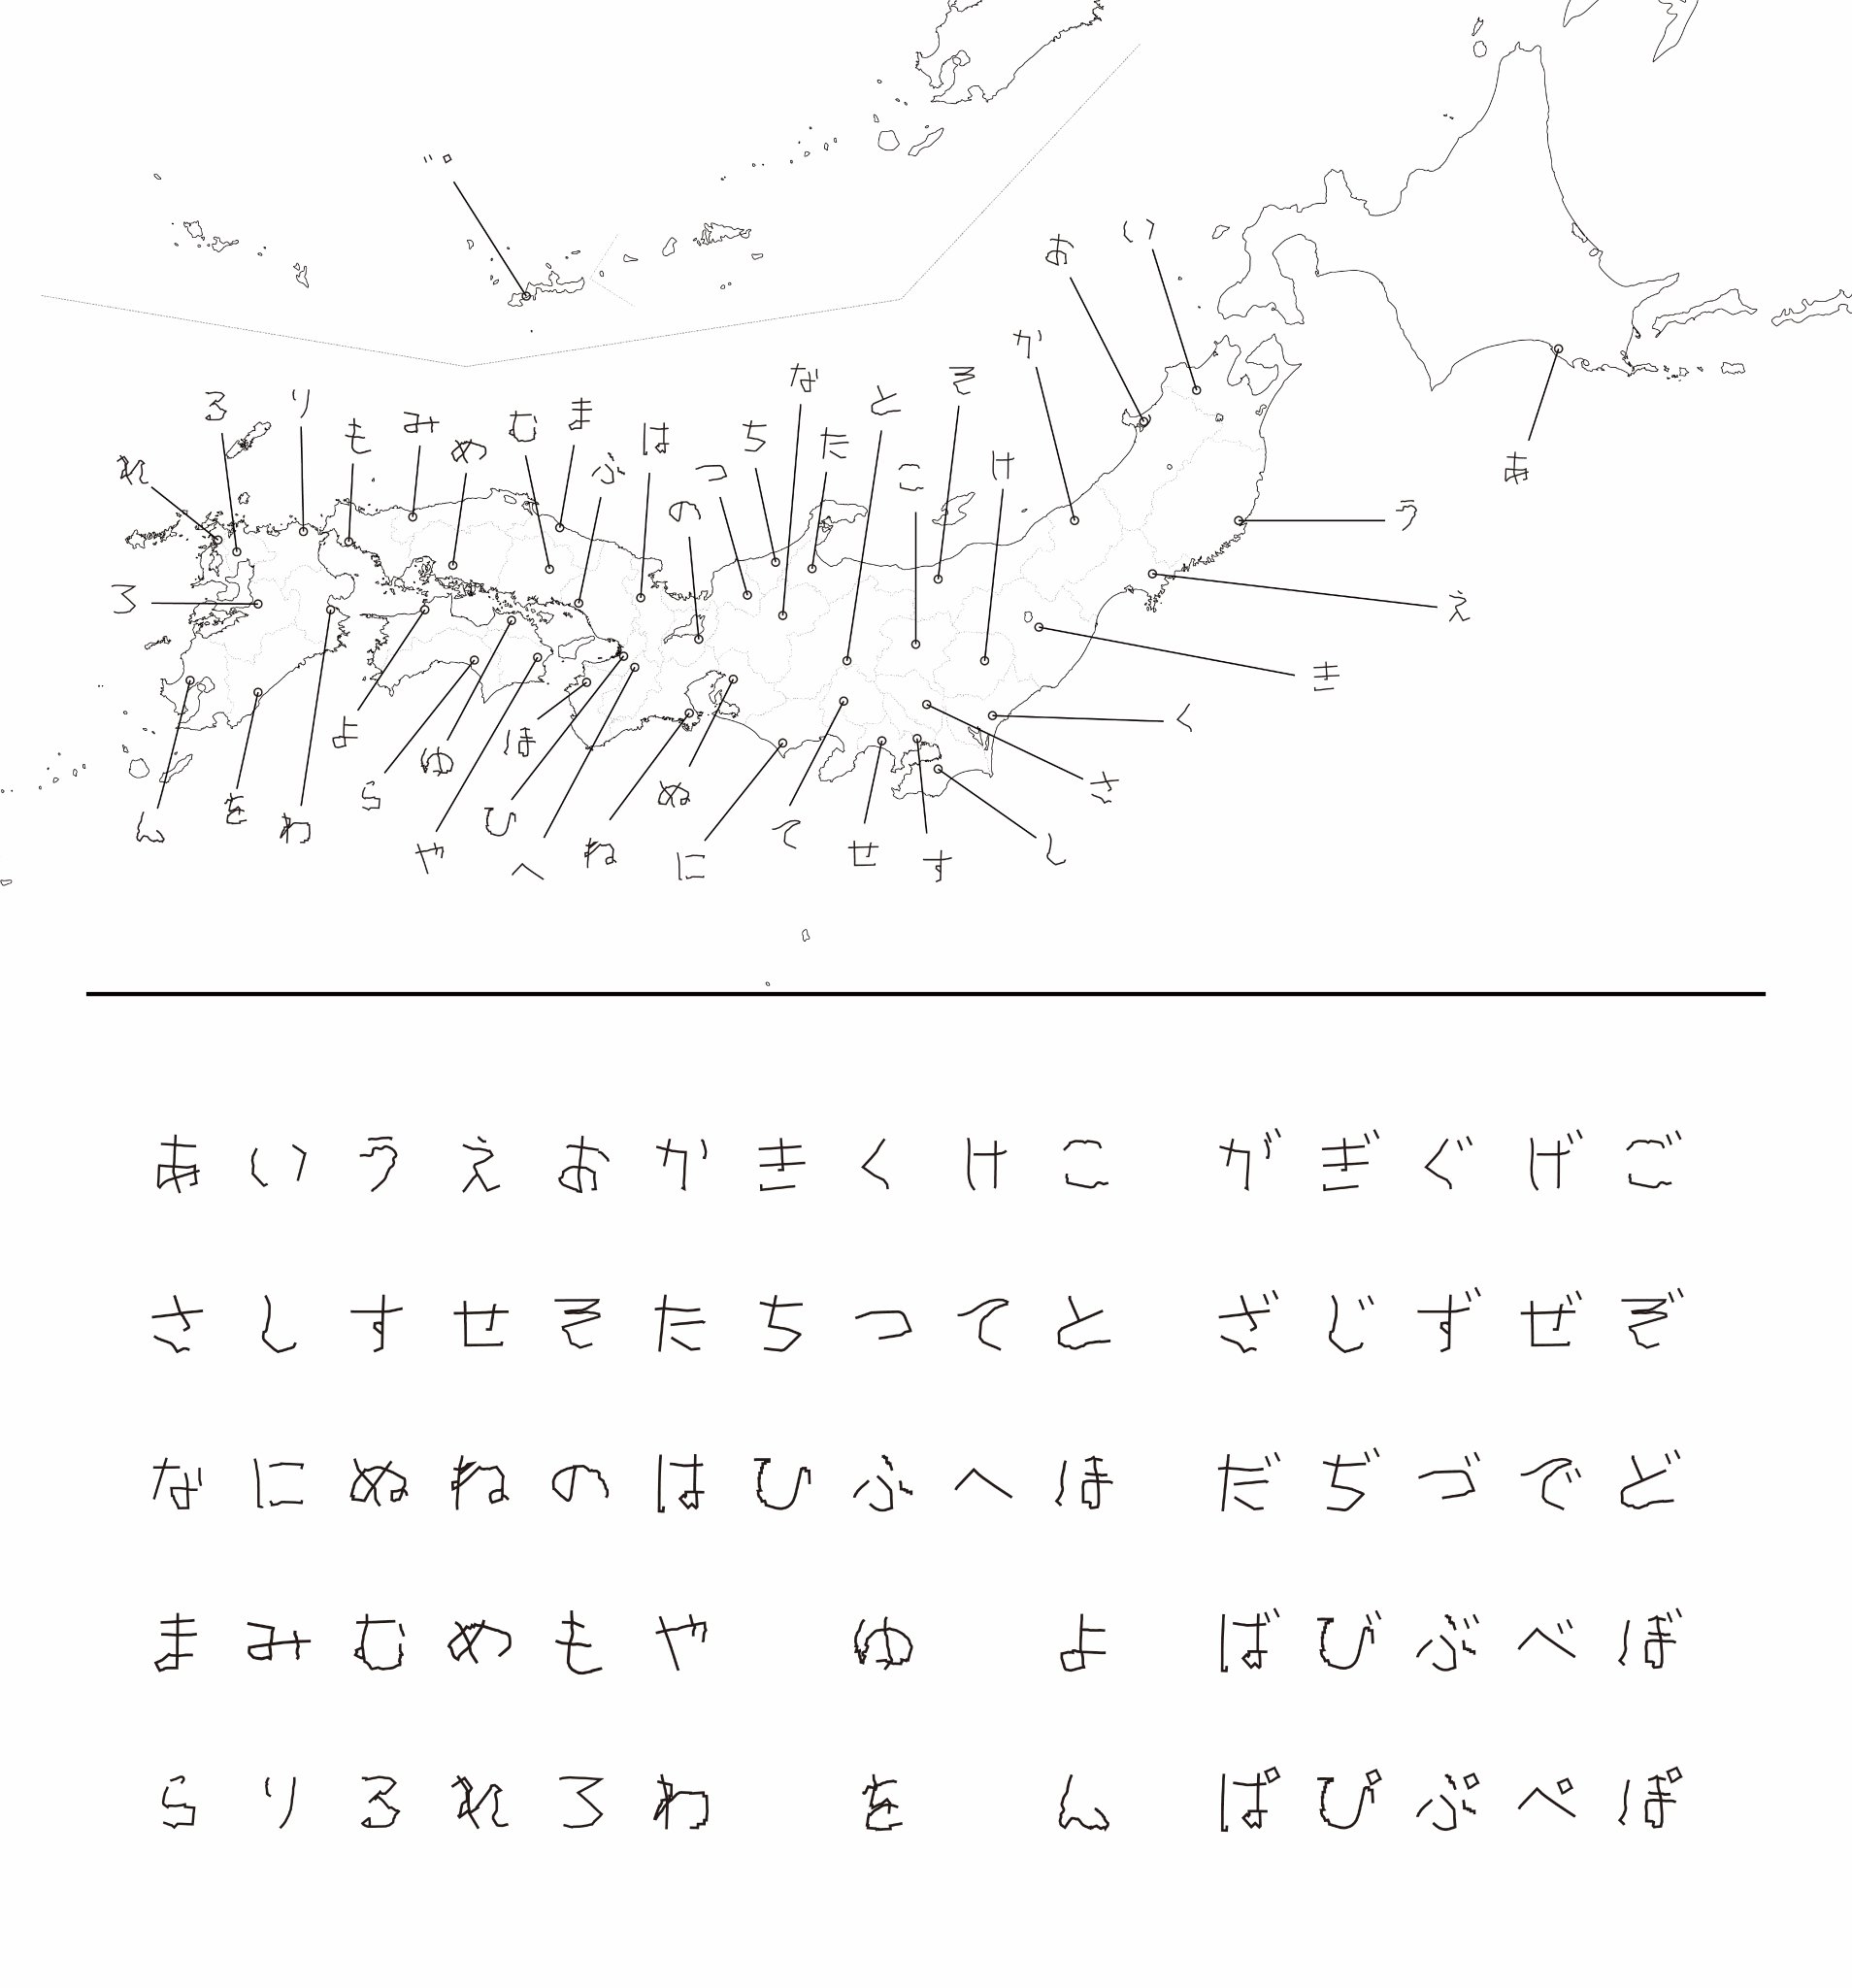 ゛゜
い
お
か
な
そ
と
る
り
も
み
め
む
ま
ふ
は
の
つ
ち
た
こ
け
れ
あ
う
ろ
え
き
よ
ゆ
ら
ほ
ぬ
く
さ
ん
を
わ
や
ひ
へ
ね
に
て
せ
す
し
あいうえおかきくけこ がぎぐげご
さしすせそたちつてと ざじずぜぞ
なにぬねのはひふへほ だぢづでど
まみむめもや ゆ よ ばびぶべぼ
らりるれろわ を ん ぱぴぷぺぽ